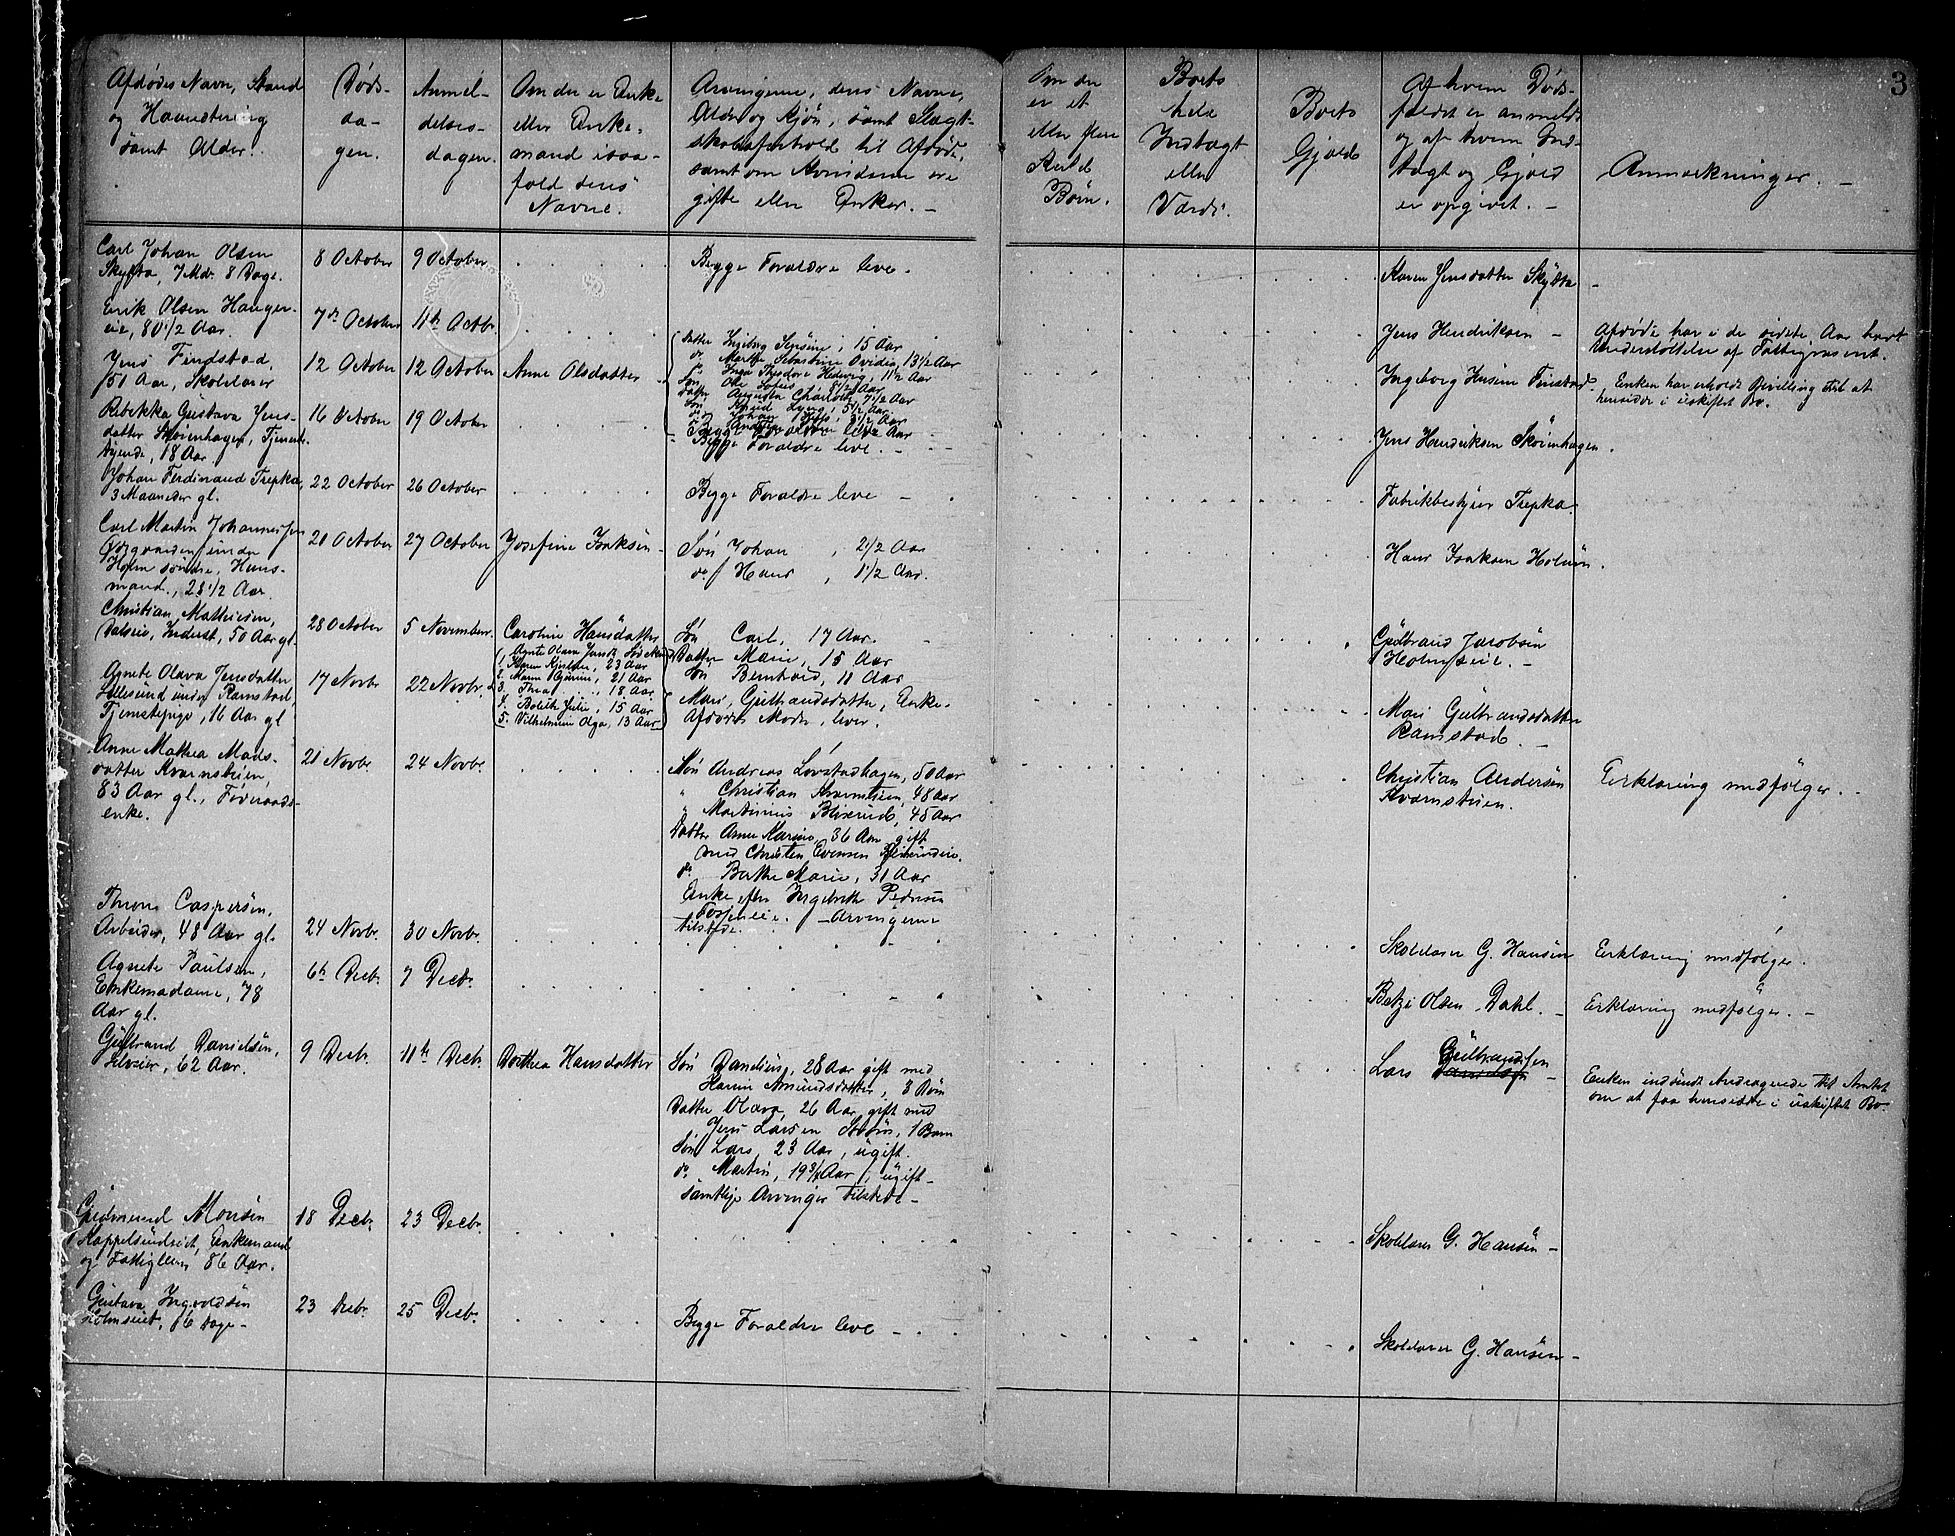 3
Afdødes Navn, Stand
og Haandtering
samt Alder.
Døds-
da-
gen.
Anmel-
delses-
dagen.
Om der er Enke
eller Enke-
mand i saa-
fald dens
Navne.
Arvingerne, deres Navne,
Alder og Kjøn, samt Slægt-
skabsforhold til Afdøde,
samt om Kvinderne ere
gifte eller Enker. —
Om der
er et
eller flere
Kuld
Børn.
Boets
hele
Indtægt
eller
Værdi.
Boets
Gjæld
Af hvem Døds-
faldet er anmeldt
og af hvem Ind-
tægt og Gjæld
er opgivet. —
Anmærkninger. —
Carl Johan Olsen
Skytta, 7 Mdr. 8 Dage.
8 October
9 October
Begge Forældre leve.
Karen Jensdatter Skytta
Erik Olsen Hauger-
eie, 80 1/2 Aar.
7de October
11te Octbr.
Jens Hendriksen —
Afdøde har i de sidste Aar havt
Understøttelse af Fattigvæsenet.
Jens Finstad,
51 Aar, Skolelærer
12 October
12 October
Anne Olsdatter
Datter Ingeborg , 15 Aar
do. Marthe Sebastine Ovidia, 13 1/2 Aar
do. Inga Theodore Hedevig, 11 1/2 Aar
Søn Ole Sofus 8 1/2 Aar
Datter Augusta Charlotte 7 1/2 Aar
Søn Lyng, 5 1/2 Aar
do. Johan 3 1/2 Aar
Aar
Ingeborg Finstad.
Enken har erholdt Bevilling til at
hensidde i uskiftet Bo.
Rebekka Gustava Jens-
datter Skøienhagen, Tjeneste-
tyende, 18 Aar
16 October
19 October
Begge Forældre leve. —
Jens Hendriksen Skøienhagen.
Johan Ferdinand Trepka,
3 Maaneder gl.
22 October
26 October
Begge Forældre leve —
Fabrikbestyrer Trepka.
Carl Martin Johannessen
under
Holm søndre, Huus-
mand, 28 1/2 Aar.
21 October
27 October
Josefine Isaksen
Søn Johan , 2 1/2 Aar
do. Hans , 1/2 Aar.
Hans Isaksen Holm.
Christian Mathiesen,
Inderst, 50 Aar gl.
28 October
5 November.
Caroline Hansdatter
Søn Carl, 17 Aar.
Datter Marie, 15 Aar
Søn Bernhard, 11 Aar
Gulbrand Jacobsen
Holmseie. —
Agnete Olava Jensdatter
under Ramstad,
Tjenestepige, 16 Aar gl
17 Novbr
22 Novbr.
Agnete Olava Jensd.
1. Karen , 23 Aar
2. , 21 Aar
3. Thea . . . , 18 Aar
4. Bolette Julie, 15 Aar
5. Vilhelmine Olga, 13 Aar
Mari Gulbrandsdatter, Enke.
Afdødes Moder, lever.
Mari Gulbrandsdatter
Ramstad. —
Anne Mathea Mads-
datter Kvernstuen,
83 Aar gl., Føderaads-
enke.
21 Novbr.
24 Novbr.
Søn Andreas Løvstadhagen, 50 Aar
" Christian Kvernstuen, 48 Aar
" Martinius , 45 Aar
Datter Anne Marie, 36 Aar gift
med Christen Evensen
do. Berthe Marie, 31 Aar
Enke efter Ingebrikt Pedersen
— Arvingerne
tilstede.
Christian Andersen
Kvernstuen.
Erklæring medfølger.
Thron Caspersen,
Arbeider, 48 Aar gl.
24 Novbr.
30 Novbr.
Skolelærer G. Hansen
Erklæring medfølger.
Agnete Paulsen,
Enkemadame, 78
Aar gl.
6te Decbr.
7 Decbr.
Betzi Olsen Dahl. —
Erklæring medfølger. —
Gulbrand Danielsen,
Selveier, 62 Aar.
9 Decbr.
11te Decbr.
Dorthea Hansdatter
Søn Danelius, 28 Aar gift med
Amundsdatter, 3 Børn
Datter Olava, 26 Aar gift med
Jens Larsen , 1 Barn
Søn Lars, 23 Aar, ugift.
do. Martin, 19 3/4 Aar, ugift —
Samtlige Arvinger tilstede —
Lars Gulbrandsen —
Enken indsendt Andragende til Amtet
om at faa hensidde i uskiftet Bo.
Gudmund Monsen
Kappelsundeiet, Enkemand
og Fattiglem 86 Aar.
18 Decbr.
23 Decbr.
Skolelærer G. Hansen —
Gustava Ingvoldsen
Holmseiet, 16 Dage —
23 Decbr.
25 Decbr.
Begge Forældre leve —
Skolelærer G. Hansen —